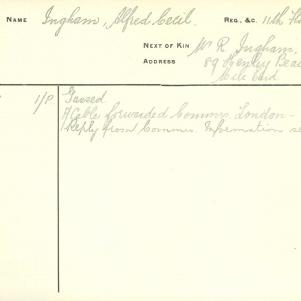 NAME Ingham, Alfred Cecil. REG. &C. 11th
NEXT OF KIN Mr R. Ingham,
ADDRESS 89 Henley Beac
Mile End
1/P Gassed
A/Cable forwarded Commns London -
Reply from Commns. Information se